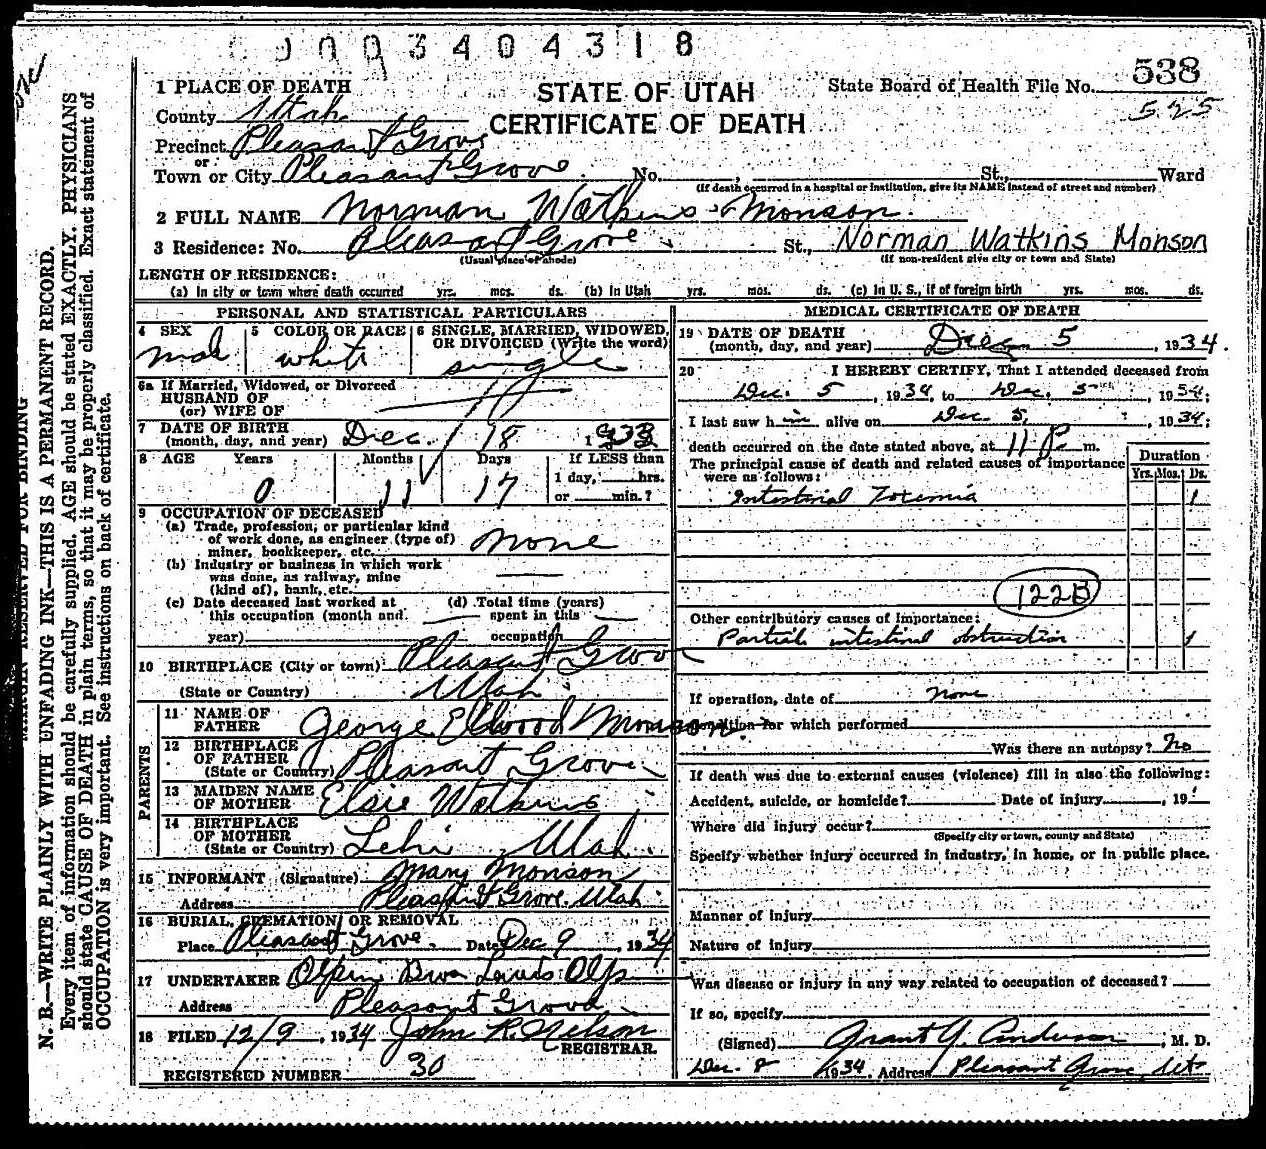 0003404318
STATE OF UTAH
CERTIFICATE OF DEATH
State Board of Health File No. 538
525
1 PLACE OF DEATH
County Utah
Precinct Pleasant Grove
or
Town or City Pleasant Grove No. , St., Ward
(If death occurred in a hospital or institution, give its NAME instead of street and number)
2 FULL NAME Norman Watkins Monson
3 Residence: No. Pleasant Grove St., Norman Watkins Monson
(Usual place of abode) (If non-resident give city or town and State)
LENGTH OF RESIDENCE:
(a) In city or town where death occurred yrs. mos. ds. (b) In Utah yrs. mos. ds. (c) In U. S., if of foreign birth yrs. mos. ds.
PERSONAL AND STATISTICAL PARTICULARS
4 SEX male
5 COLOR OR RACE white
6 SINGLE, MARRIED, WIDOWED, OR DIVORCED (Write the word) single
6a If Married, Widowed, or Divorced
HUSBAND OF
(or) WIFE OF
7 DATE OF BIRTH
(month, day, and year) Dec. 18 1933
8 AGE Years Months Days If LESS than
0 11 17 1 day, hrs.
or min.?
9 OCCUPATION OF DECEASED
(a) Trade, profession, or particular kind
of work done, as engineer (type of)
miner, bookkeeper, etc. None
(b) Industry or business in which work
was done, as railway, mine
(kind of), bank, etc.
(c) Date deceased last worked at (d) Total time (years)
this occupation (month and spent in this
year) occupation
10 BIRTHPLACE (City or town) Pleasant Grove
(State or Country) Utah
PARENTS
11 NAME OF
FATHER George Ellwood Monson
12 BIRTHPLACE
OF FATHER
(State or Country) Pleasant Grove
13 MAIDEN NAME
OF MOTHER Elsie Watkins
14 BIRTHPLACE
OF MOTHER
(State or Country) Lehi Utah.
15 INFORMANT (Signature) Mary Monson
Address Pleasant Grove Utah
16 BURIAL, CREMATION, OR REMOVAL
Place Pleasant Grove. Date Dec 9, 1934
17 UNDERTAKER Olpin Bros Louis Olp
Address Pleasant Grove
18 FILED 12/9, 1934 John R. Nelson
REGISTRAR.
REGISTERED NUMBER 30
MEDICAL CERTIFICATE OF DEATH
19 DATE OF DEATH
(month, day, and year) Dec 5, 1934.
20 I HEREBY CERTIFY, That I attended deceased from
Dec. 5, 1934, to Dec. 5, 1934;
I last saw him alive on Dec. 5, 1934;
death occurred on the date stated above, at 11 P m.
The principal cause of death and related causes of importance
were as follows:
Duration
Yrs. Mos. Ds.
Intestinal Toxemia 1
122B
Other contributory causes of importance:
Partial intestinal obstruction 1
If operation, date of none
Condition for which performed
Was there an autopsy? No
If death was due to external causes (violence) fill in also the following:
Accident, suicide, or homicide? Date of injury , 19
Where did injury occur?
(Specify city or town, county and State)
Specify whether injury occurred in industry, in home, or in public place.
Manner of injury
Nature of injury
Was disease or injury in any way related to occupation of deceased?
If so, specify
(Signed) Grant Y. Anderson, M. D.
Dec. 8 1934. Address Pleasant Grove, Ut
MARGIN RESERVED FOR BINDING
N. B.—WRITE PLAINLY WITH UNFADING INK—THIS IS A PERMANENT RECORD.
Every item of information should be carefully supplied. AGE should be stated EXACTLY. PHYSICIANS
should state CAUSE OF DEATH in plain terms, so that it may be properly classified. Exact statement of
OCCUPATION is very important. See instructions on back of certificate.